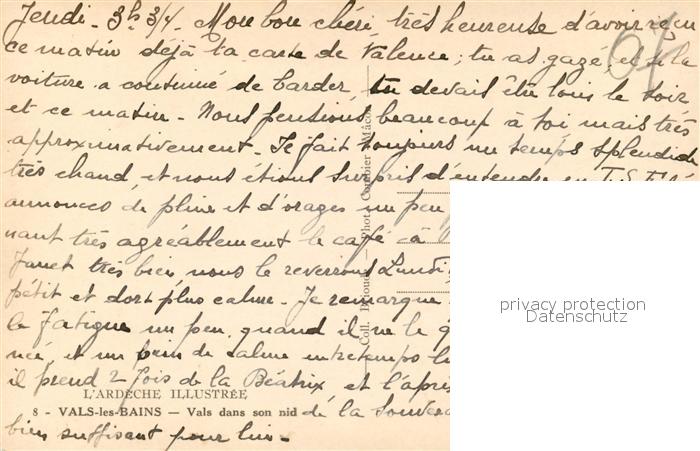 Jeudi - 3h 3/4. Mon bon chéri, très heureuse d'avoir reçu
ce matin déjà ta carte de Valence; tu as gazé, et si la
voiture a continué de barder, tu devais être loin le soir
et ce matin - Nous pensions beaucoup à toi mais très
approximativement - Il fait toujours un temps splendide
très chaud, et nous étions surpris d'entendre en T.S.F.
annonces de pluies et d'orages un peu
nant très agréablement le café à
très bien nous le reverrons Lundi,
pétit et dort plus calme - Je remarque
le fatigue un peu quand il ne le
et un brin de calme entretemps
il prend 2 fois de la Béatrix et l'après
L'ARDÈCHE ILLUSTRÉE
8 - VALS-les-BAINS — Vals dans son nid
de la
bien suffisant pour lui -
Photo Combier Mâcon
Coll.
privacy protection
Datenschutz